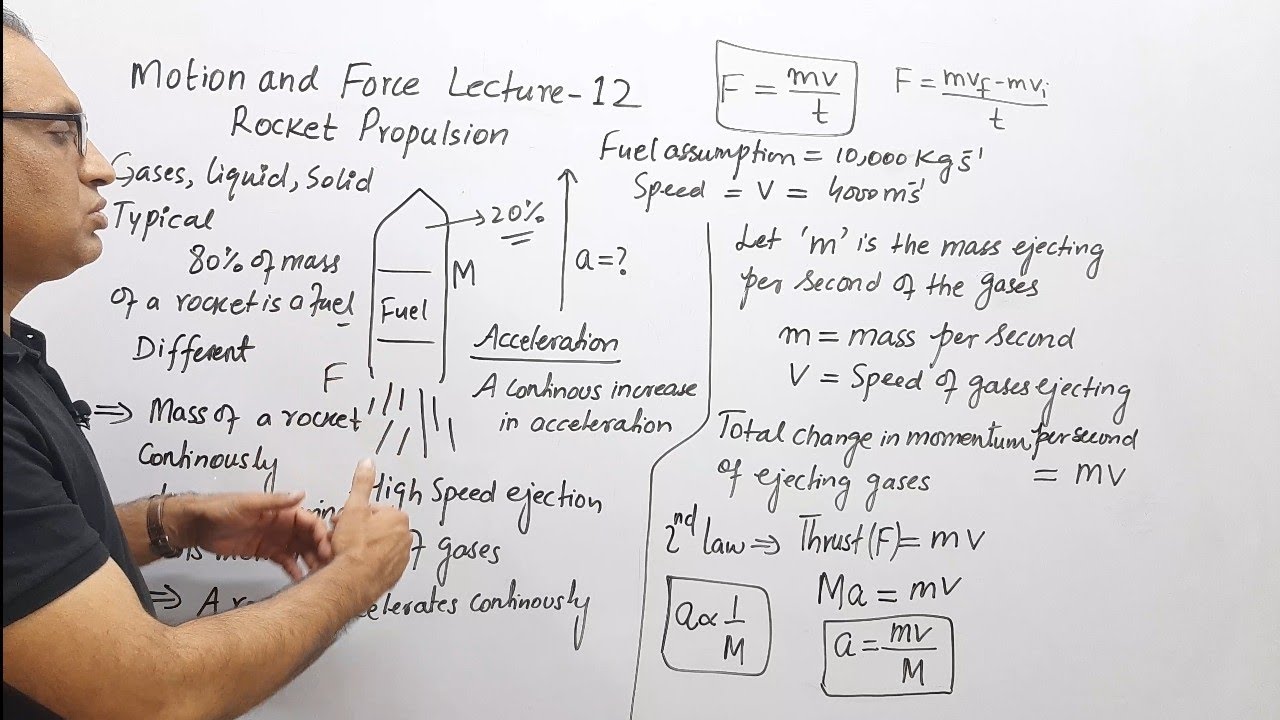 Motion and Force Lecture-12
Rocket Propulsion
Gases, liquid, Solid
Typical
80% of mass
of a rocket is a fuel
Different
⇒ Mass of a rocket
Continously
⇒ A accelerates continously
20%
M
Fuel
F
a=?
Acceleration
A continous increase
in acceleration
High Speed ejection
of gases
F = mv/t
F = mvf-mvi/t
Fuel assumption = 10,000 Kg s⁻¹
Speed = V = 4000 ms⁻¹
Let 'm' is the mass ejecting
per second of the gases
m = mass per second
V = Speed of gases ejecting
Total change in momentum per second
of ejecting gases = mv
2nd law ⇒ Thrust(F) = mv
Ma = mv
a ∝ 1/M
a = mv/M